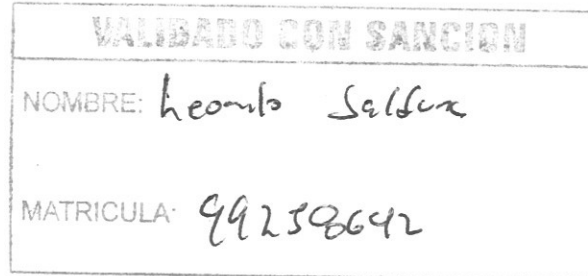 VALIDADO CON SANCION
NOMBRE: Leonilo
MATRICULA: 99238642